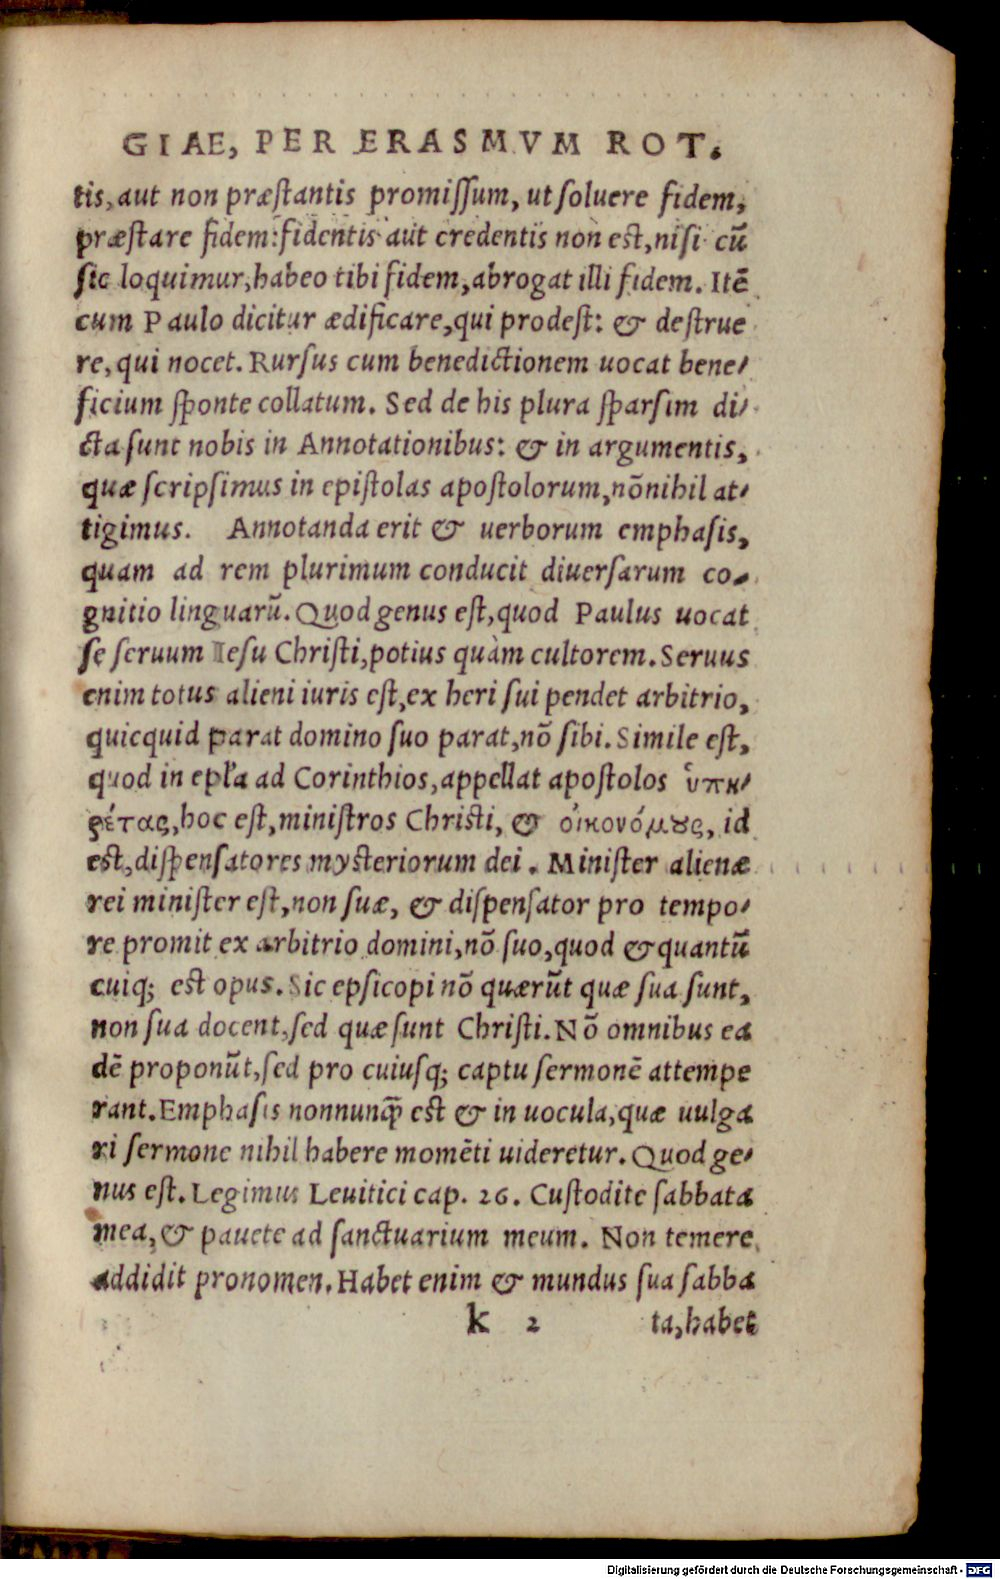 GIAE, PER ERASMVM ROT.
tis, aut non præstantis promissum, ut soluere fidem,
præstare fidem: fidentis aut credentis non est, nisi cū
sic loquimur, habeo tibi fidem, abrogat illi fidem. Itē
cum Paulo dicitur ædificare, qui prodest: & destrue
re, qui nocet. Rursus cum benedictionem uocat bene-
ficium sponte collatum. Sed de his plura sparsim di-
cta sunt nobis in Annotationibus: & in argumentis,
quæ scripsimus in epistolas apostolorum, nōnihil at-
tigimus. Annotanda erit & uerborum emphasis,
quam ad rem plurimum conducit diuersarum co-
gnitio linguarū. Quod genus est, quod Paulus uocat
se seruum Iesu Christi, potius quàm cultorem. Seruus
enim totus alieni iuris est, ex heri sui pendet arbitrio,
quicquid parat domino suo parat, nō sibi. Simile est,
quod in epl'a ad Corinthios, appellat apostolos ὑπη-
ρέτας, hoc est, ministros Christi, & οἰκονόμȣς, id
est, dispensatores mysteriorum dei. Minister alienæ
rei minister est, non suæ, & dispensator pro tempo-
re promit ex arbitrio domini, nō suo, quod & quantū
cuiq; est opus. Sic epsicopi nō quærūt quæ sua sunt,
non sua docent, sed quæ sunt Christi. Nō omnibus ea
dē proponūt, sed pro cuiusq; captu sermonē attempe
rant. Emphasis nonnunq̃ est & in uocula, quæ uulga
ri sermone nihil habere momēti uideretur. Quod ge-
nus est. Legimus Leuitici cap. 26. Custodite sabbata
mea, & pauete ad sanctuarium meum. Non temere
addidit pronomen. Habet enim & mundus sua sabba
k 2 ta, habet
Digitalisierung gefördert durch die Deutsche Forschungsgemeinschaft - DFG